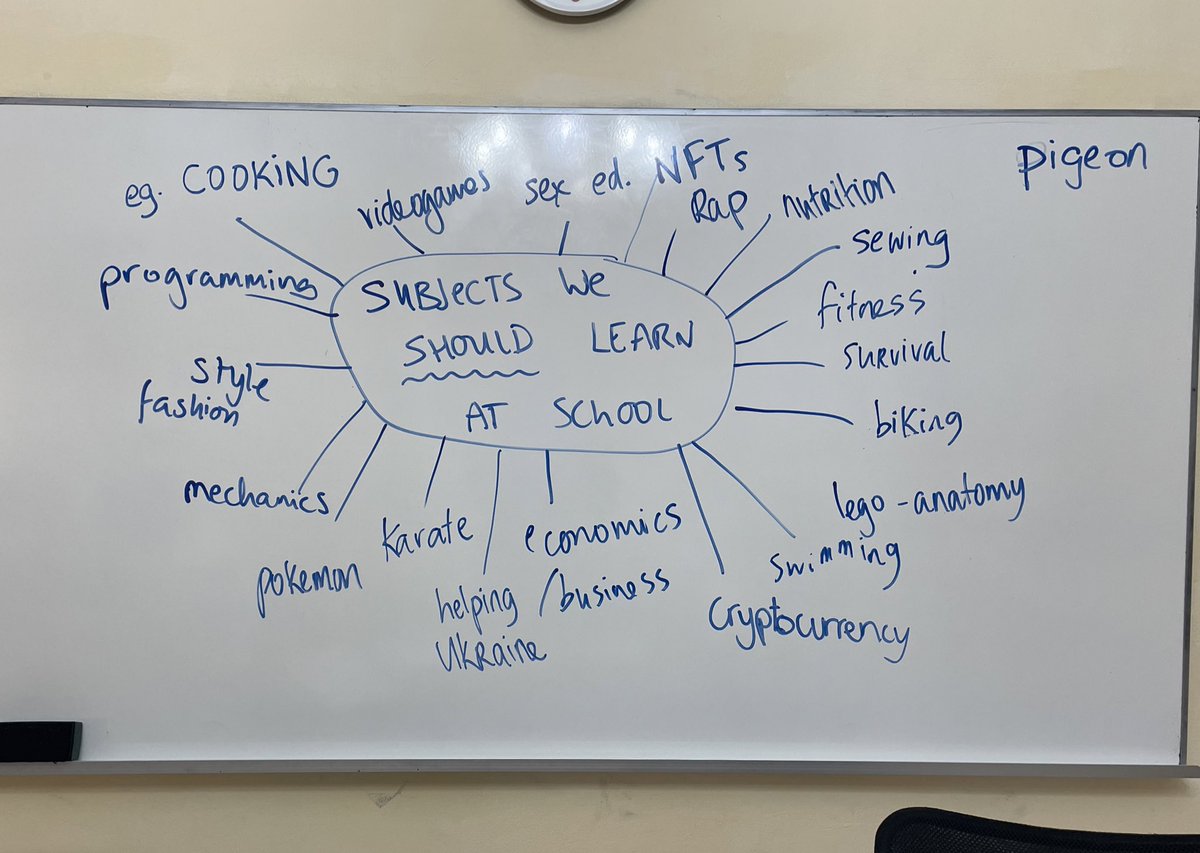 eg. COOKING
videogames
sex ed.
NFTs
Rap
nutrition
pigeon
sewing
programming
SUBJECTS WE
SHOULD LEARN
AT SCHOOL
fitness
survival
style
fashion
biking
mechanics
lego - anatomy
pokemon
karate
economics
/business
swimming
helping
Ukraine
cryptocurrency